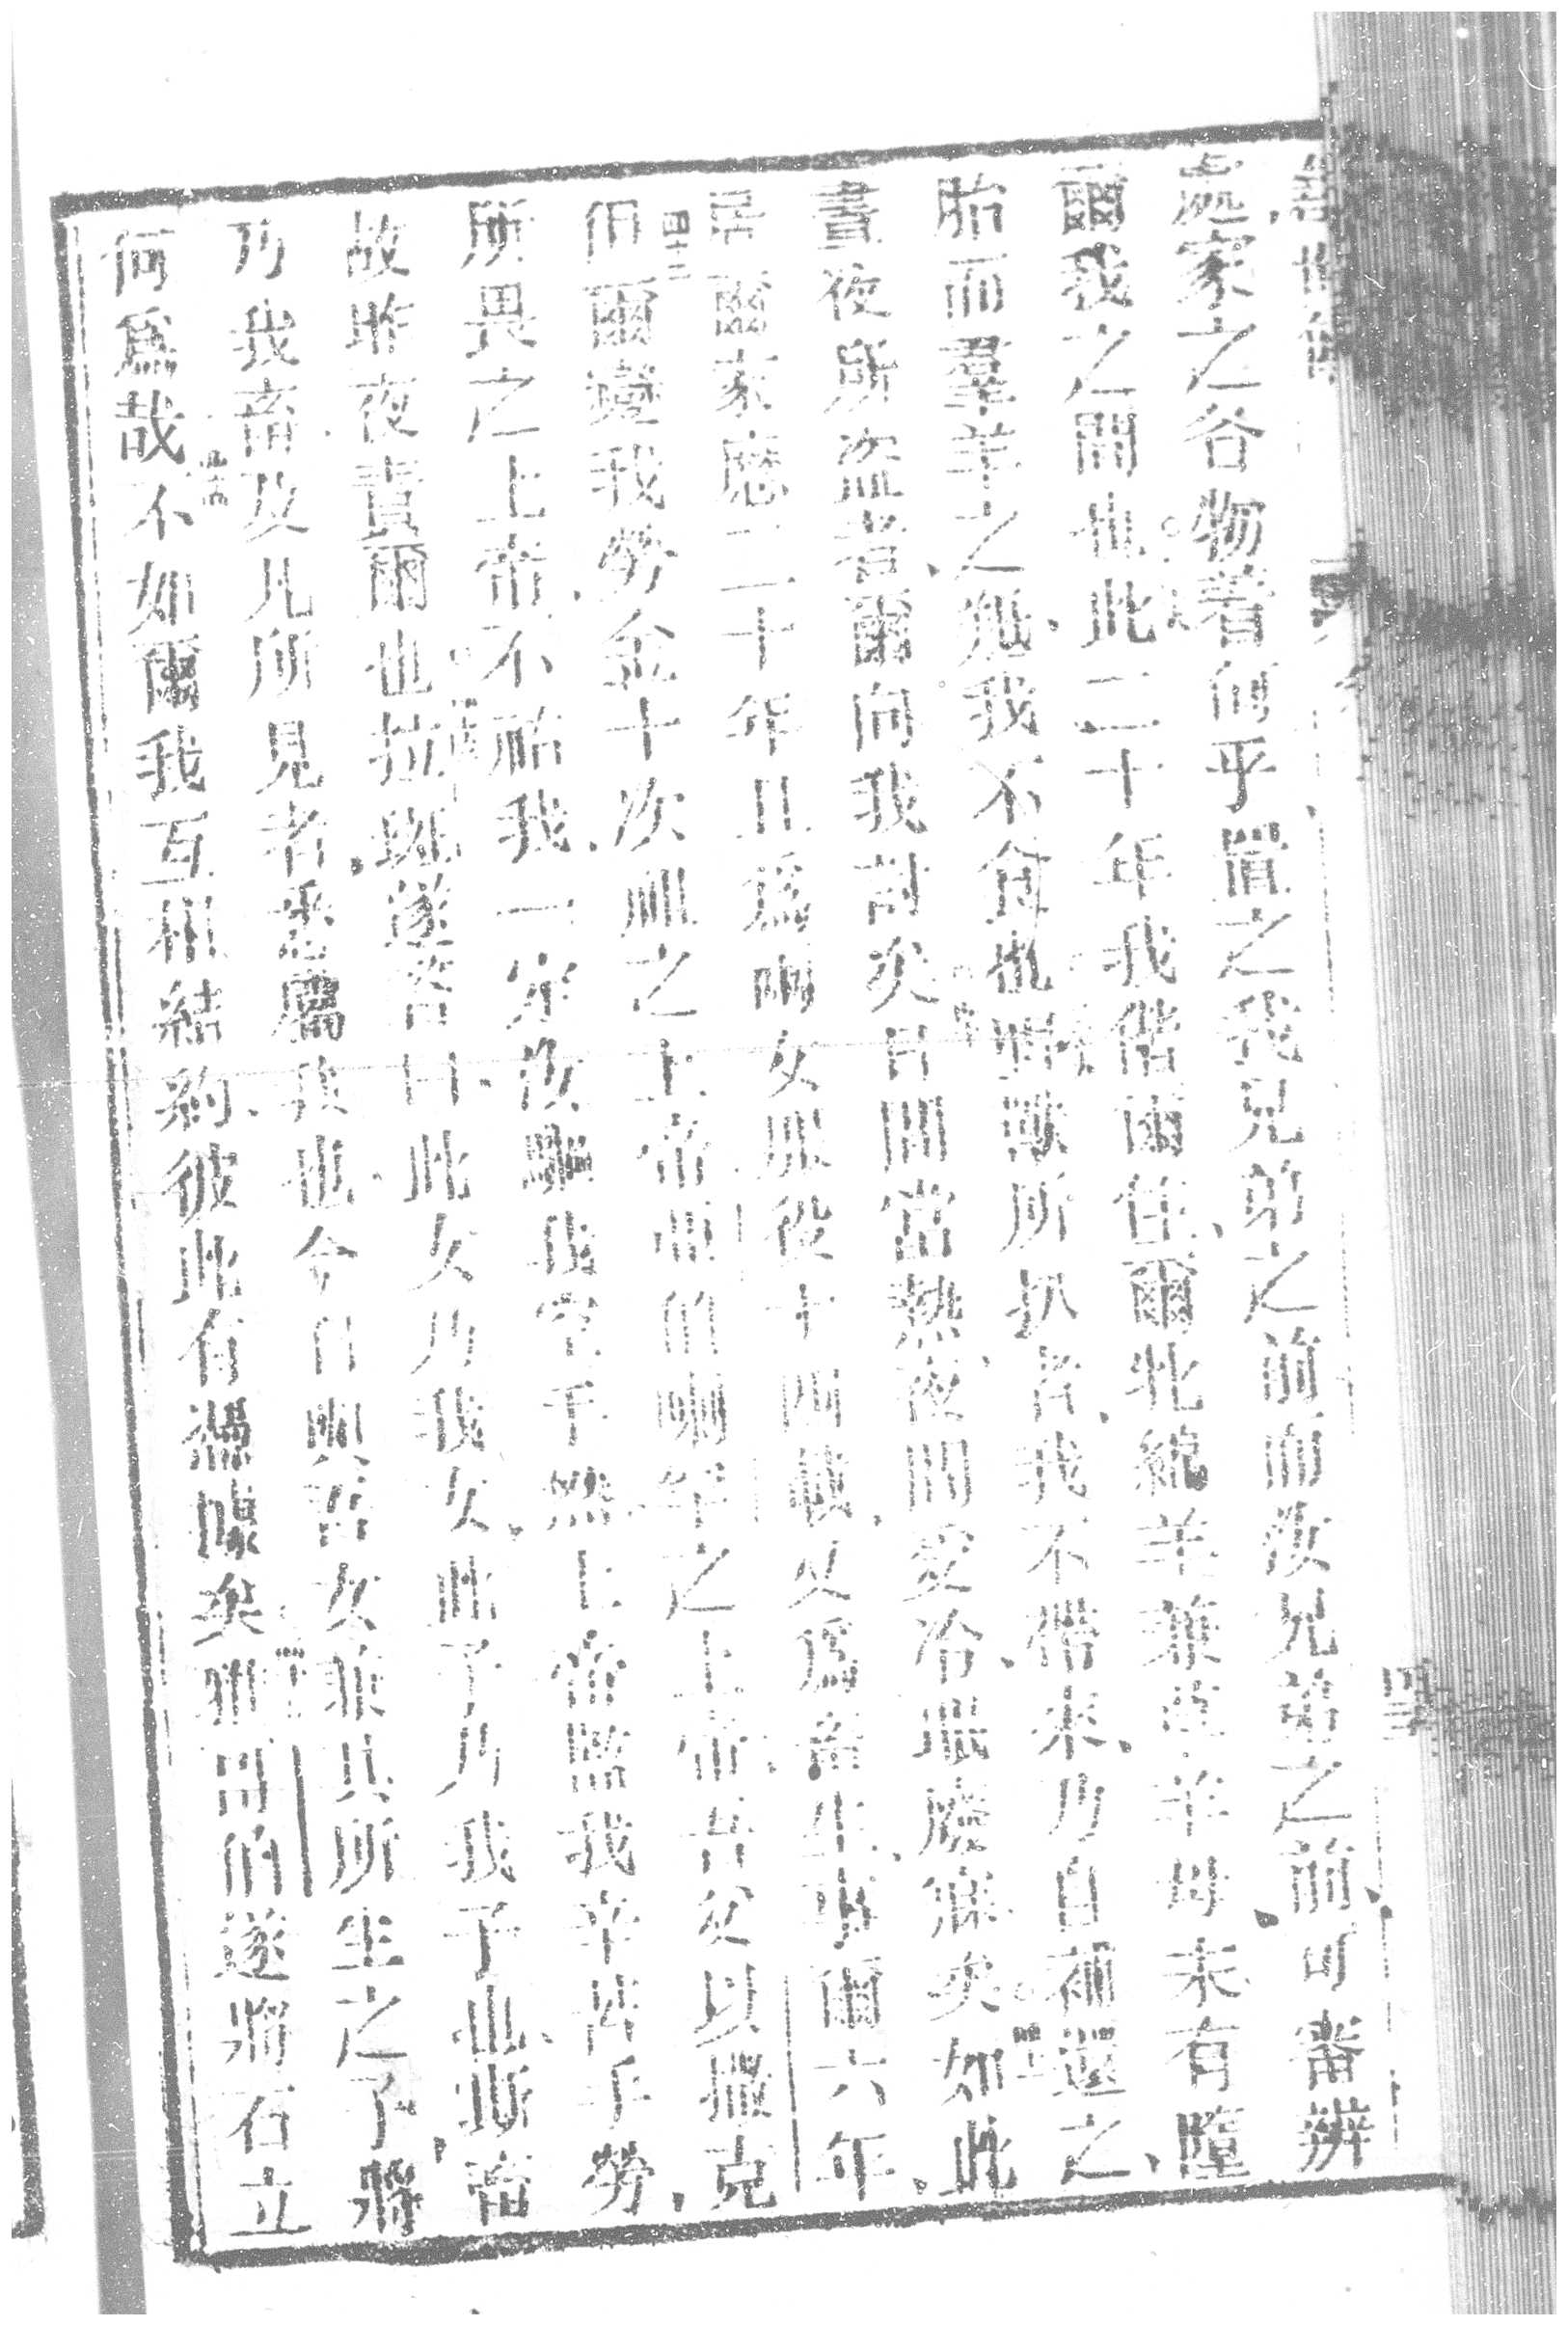 處家之各物者何乎置之我兄弟之前而汝兄弟之前可審辨
爾我之間也此二十年我偕爾住爾牝綿羊兼牝羊毋未有墮
胎而羣羊之羝我不食也野獸所扒者我不攜來乃自補還之
晝夜所盜者爾向我討矣日間當熱夜間受冷眼廢寐矣如此
居爾家歷二十年且爲兩女服役十四載又爲畜生事爾六年
四十二
但爾變我勞金十次祖之上帝亞伯喇罕之上帝吾父以撒克
所畏之上帝不祐我一定汝驅我空手然上帝監我辛苦手勞
故昨夜責爾也拉班遂答曰此女乃我女此子乃我子此畜
乃我畜及凡所見者悉屬我也今日與吾女兼其所生之子將
何爲哉不如爾我互相結約彼此有憑據矣耶可伯遂將石立